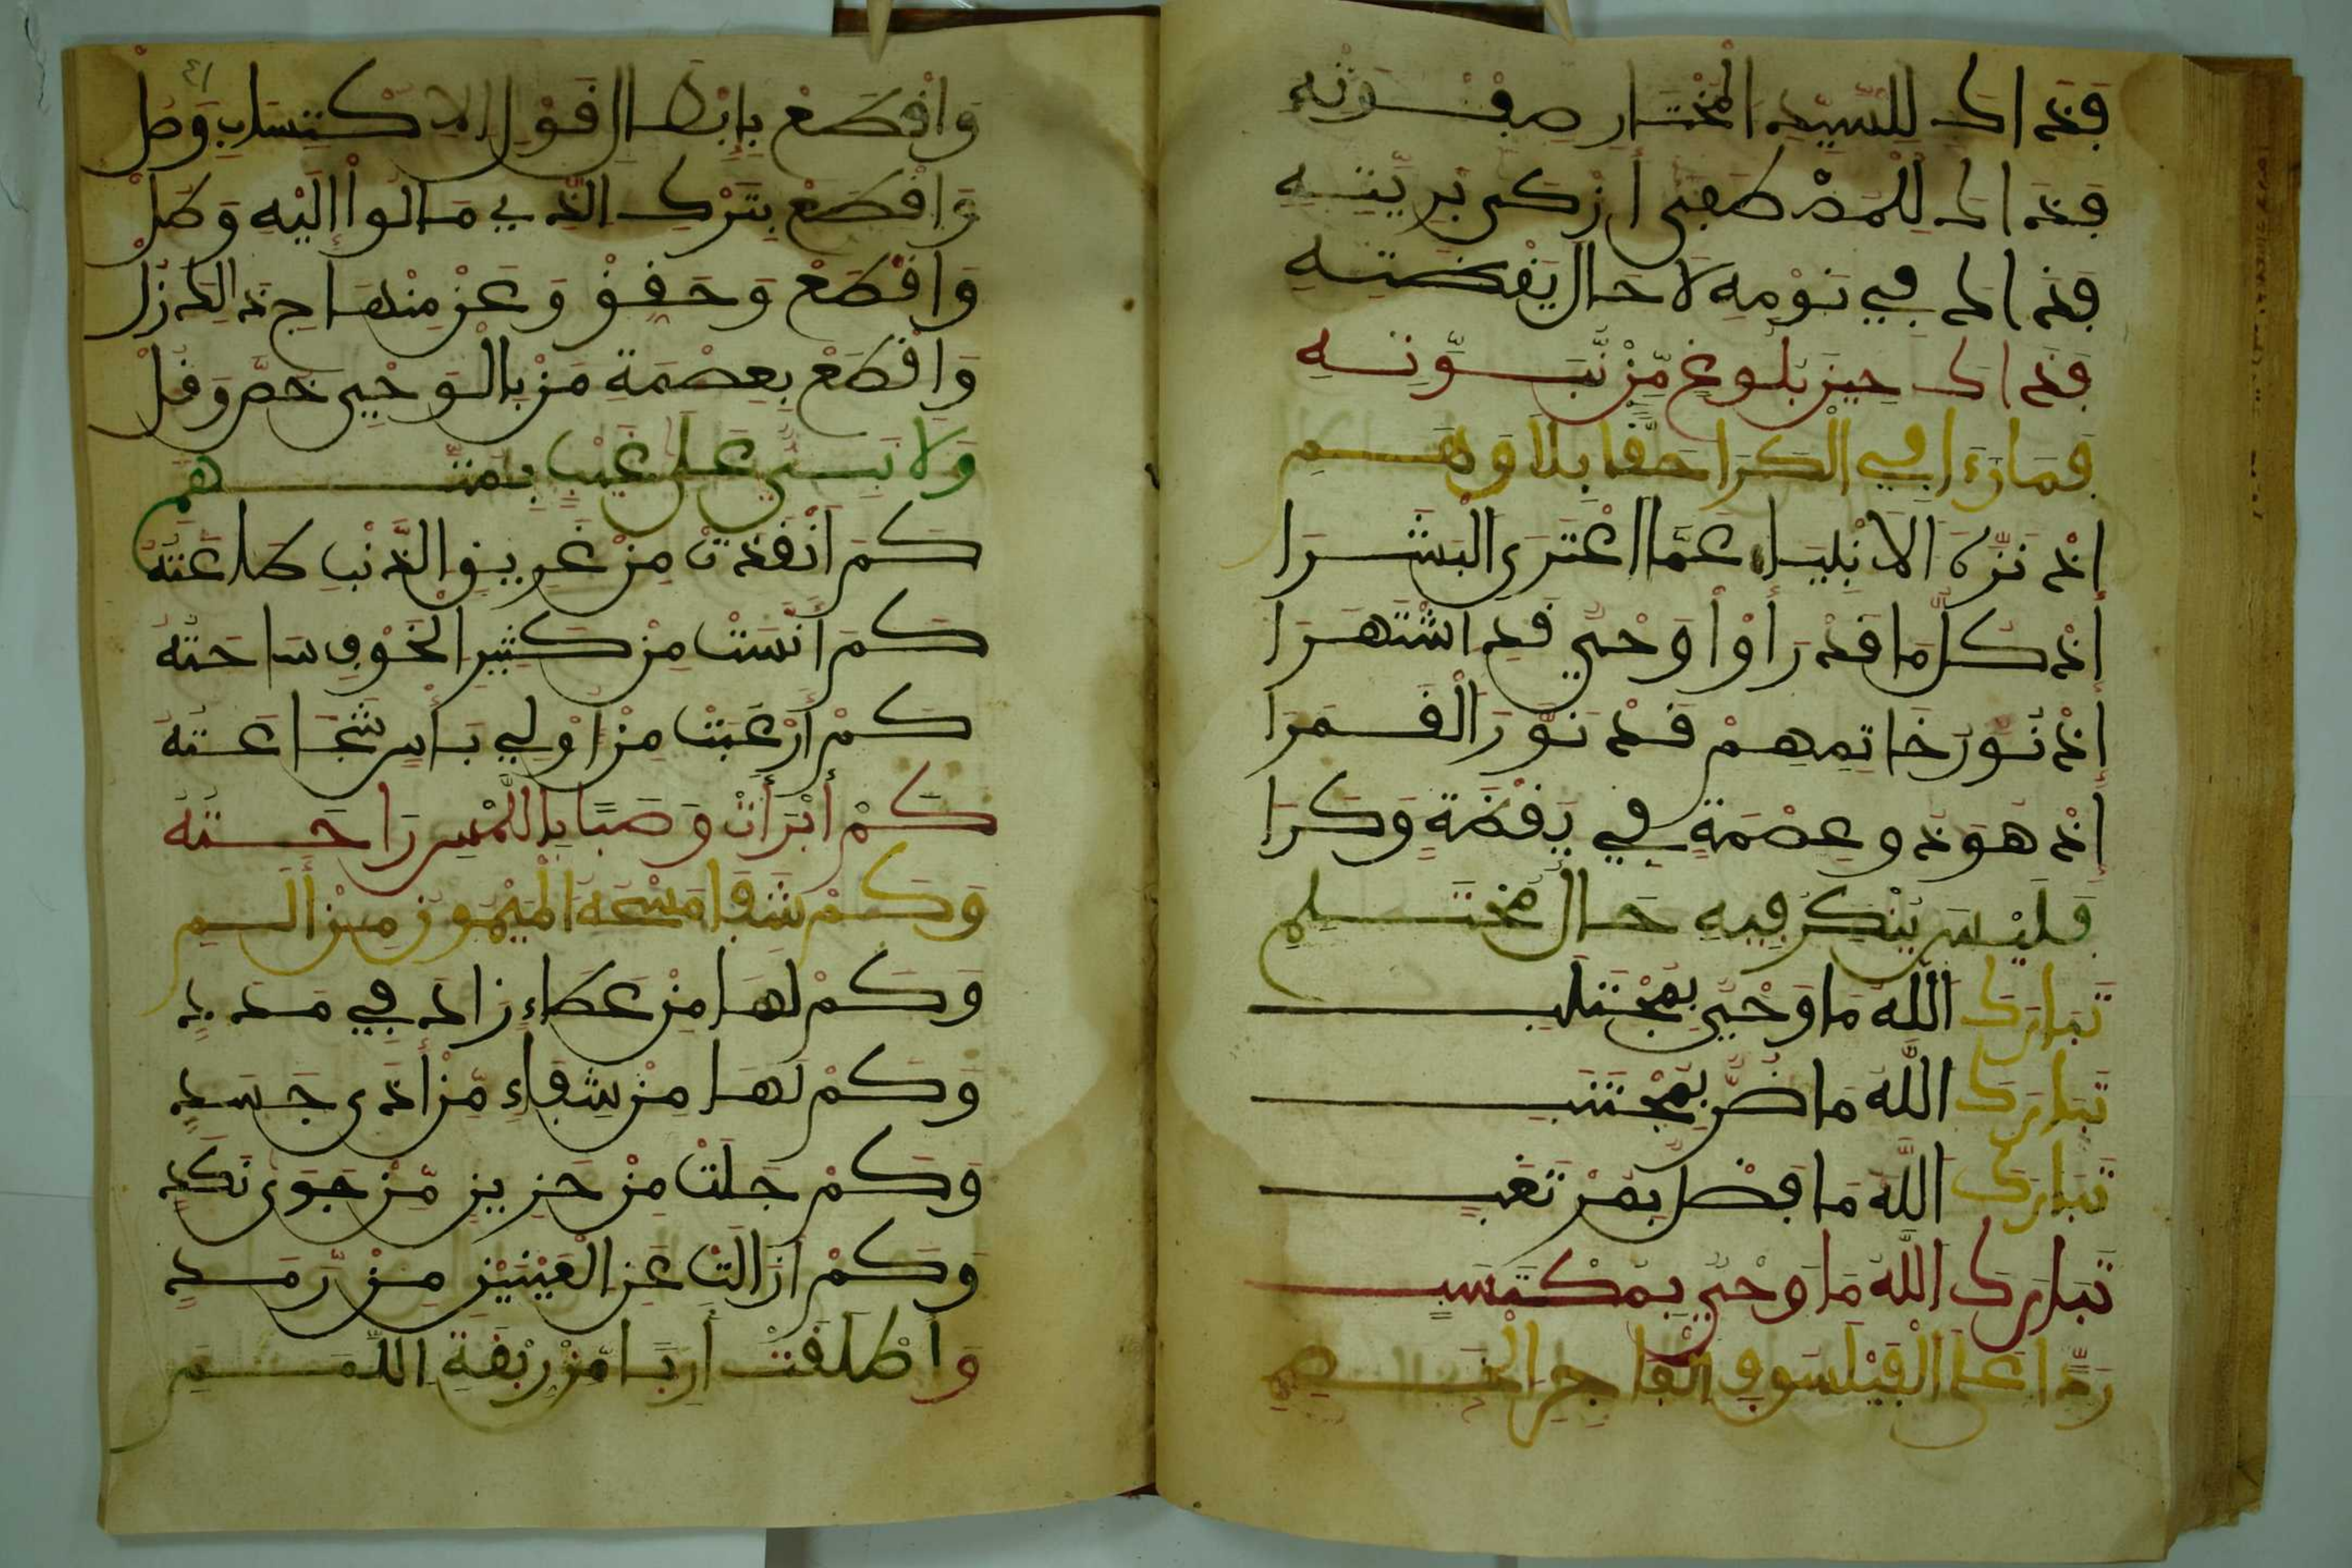 فَذَاكَ لِلسَّيِّدِ الْمُخْتَارِ صِفْوَتِهِ
فَذَاكَ لِلْمُصْطَفَى أَزْكَى بَرِيَّتِهِ
فَذَاكَ فِي نَوْمِهِ لَا حَالَ يَقْظَتِهِ
فَذَاكَ حِينَ بُلُوغٍ مِّن نُّبُوَّتِهِ
فَمَا رَءَا فِي الْكَرَا حَقًّا بِلَا وَهَمِ
إِذْ نَزَّهَ الْأَنْبِيَاءَ عَمَّا اعْتَرَى الْبَشَرَا
إِذْ كُلُّ مَا قَدْ رَأَوْا وَحْيٌ قَدِ اشْتَهَرَا
إِذْ نُورُ خَاتِمِهِمْ قَدْ نَوَّرَ الْقَمَرَا
إِذْ هُوَ ذُو عِصْمَةٍ فِي يَقْظَةٍ وَكَرَا
فَلَيْسَ يُنْكَرُ فِيهِ حَالُ مُحْتَلِمِ
تَبَارَكَ اللَّهُ مَا وَحْيٌ بِمُجْتَلَبِ
تَبَارَكَ اللَّهُ مَا بِمُجْتَنَبِ
تَبَارَكَ اللَّهُ مَا فَضْلٌ بِمُرْتَغَبِ
تَبَارَكَ اللَّهُ مَا وَحْيٌ بِمُكْتَسَبٍ
رَدًّا عَلَى الْفَيْلَسُوفِ الْفَاجِرِ الْخَصِمِ
وَاقْطَعْ بِإِبْطَالِ قَوْلِ الِاكْتِسَابِ وَصِلْ
وَاقْطَعْ بِتَرْكِ الَّذِي مَالُوا إِلَيْهِ وَطُلْ
وَاقْطَعْ وَحَقِّقْ وَعَنْ مِنْهَاجِ ذَلِكَ زُلْ
وَاقْطَعْ بِعِصْمَةِ مَنْ بِالْوَحْيِ خُصَّ وَقُلْ
وَلَا نَبِيٌّ عَلَى غَيْبٍ بِمُتَّهَمِ
كَمْ أَنْقَذَتْ مِنْ غَرِيقِ الذَّنْبِ طَاعَتُهُ
كَمْ أَنَّسَتْ مِنْ كَثِيرِ الْخَوْفِ سَاحَتُهُ
كَمْ أَرْعَبَتْ مِنْ أُولِي بَأْسٍ شَجَاعَتُهُ
كَمْ أَبْرَأَتْ وَصِبًا بِاللَّمْسِ رَاحَتُهُ
وَكَمْ شَفَا مَسْحُهُ الْمَيْمُونُ مِنْ أَلَمِ
وَكَمْ لَهَا مِنْ عَطَاءٍ زَادَ فِي مَدَدِ
وَكَمْ لَهَا مِنْ شِفَاءٍ مِّنْ أَذَى جَسَدِ
وَكَمْ جَلَتْ مِنْ حَزِينٍ مِّنْ جَوًى نَكَدِ
وَكَمْ أَزَالَتْ عَنِ الْعَيْنَيْنِ مِنْ رَّمَدِ
وَأَطْلَقَتْ أَرِبًا مِّنْ رِبْقَةِ اللَّمَمِ